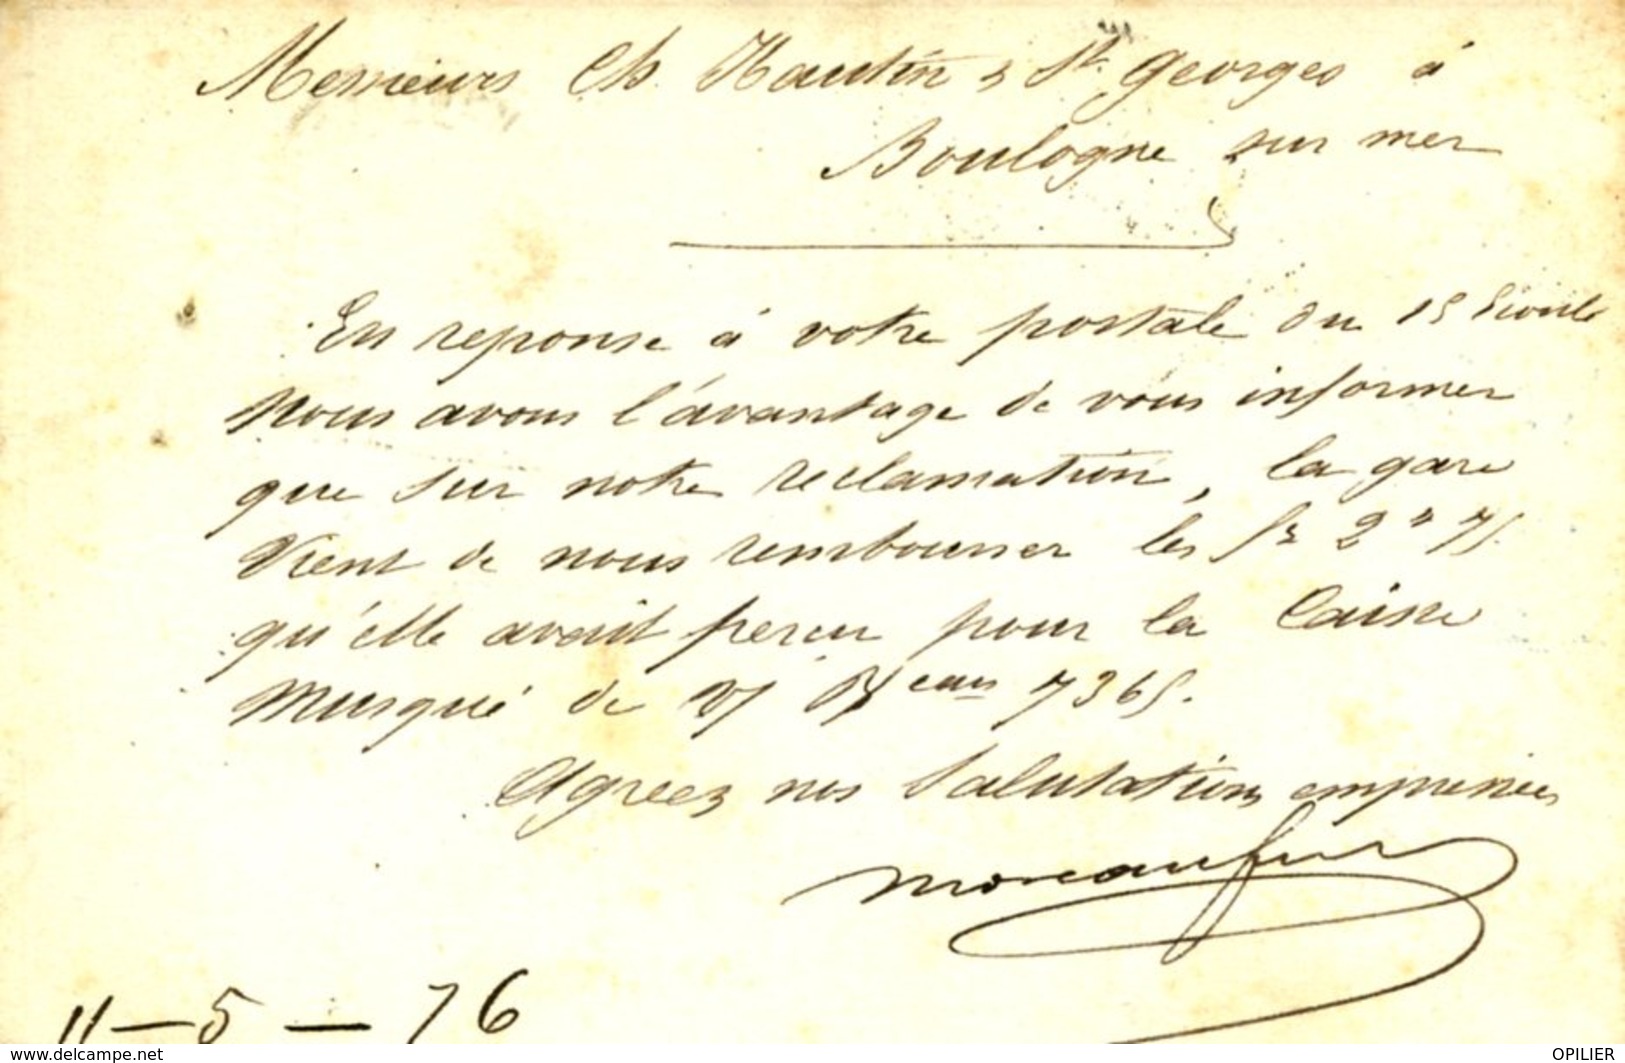 Messieurs Ch. Hautin & St. Georges à
Boulogne sur mer
En reponse à votre postale du 15
Nous avons l'avantage de vous informer
que sur notre reclamation, la gare
Vient de nous rembourser les fr 2" 75
qu'elle avait perçu pour la Caisse
Musqué de 7365.
Agreez nos Salutations empressées
Moreau
11 - 5 - 76
www.delcampe.net
OPILIER